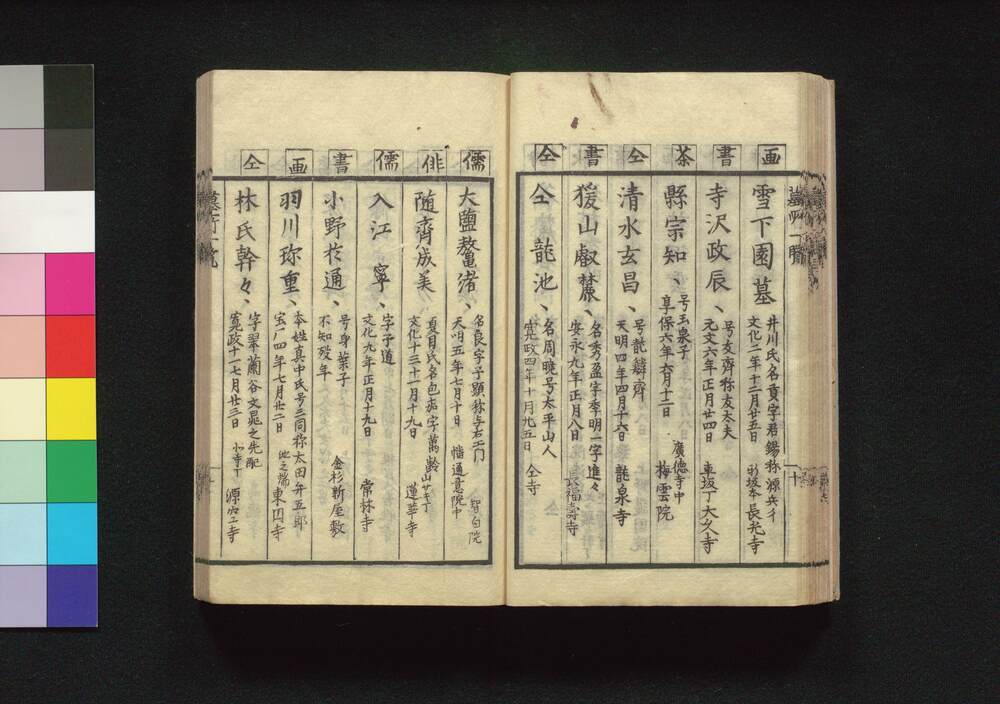 画
雪下園墓
井川氏名貢字君錫称源兵卫
文化二年十二月廿五日
長光寺
書
寺沢政辰、
号友斎称友太夫
元文六年正月廿四日
車坂丁大久寺
茶
縣宗知、
号玉泉子
享保六年六月十二日
廣徳寺中
梅雲院
仝
清水玄昌、
天明四年四月十六日
龍泉寺
書
猨山叡麓、
名秀盈字季明一字進々
安永九年正月八日
長福壽寺
仝
仝龍池、
名周暁号太平山人
寛政四年十月廿五日
仝寺
儒
大鹽鼇渚、
名良字子顕称与右エ門
天明五年七月十日
智白院
俳
随齊成美
夏目氏名包嘉字萬齢
文化十三十一月十九日
蓮華寺
儒
入江寧、
字子道
文化九年正月十九日
常林寺
書
小野於通、
号身葉子
不知歿年
金杉新屋敷
画
羽川珍重、
本姓真中氏号三同称太田弁五郎
宝ノ四年七月廿二日
東図寺
仝
林氏幹々、
字翠蘭谷文晁之先配
寛政十一七月廿三日
源空寺